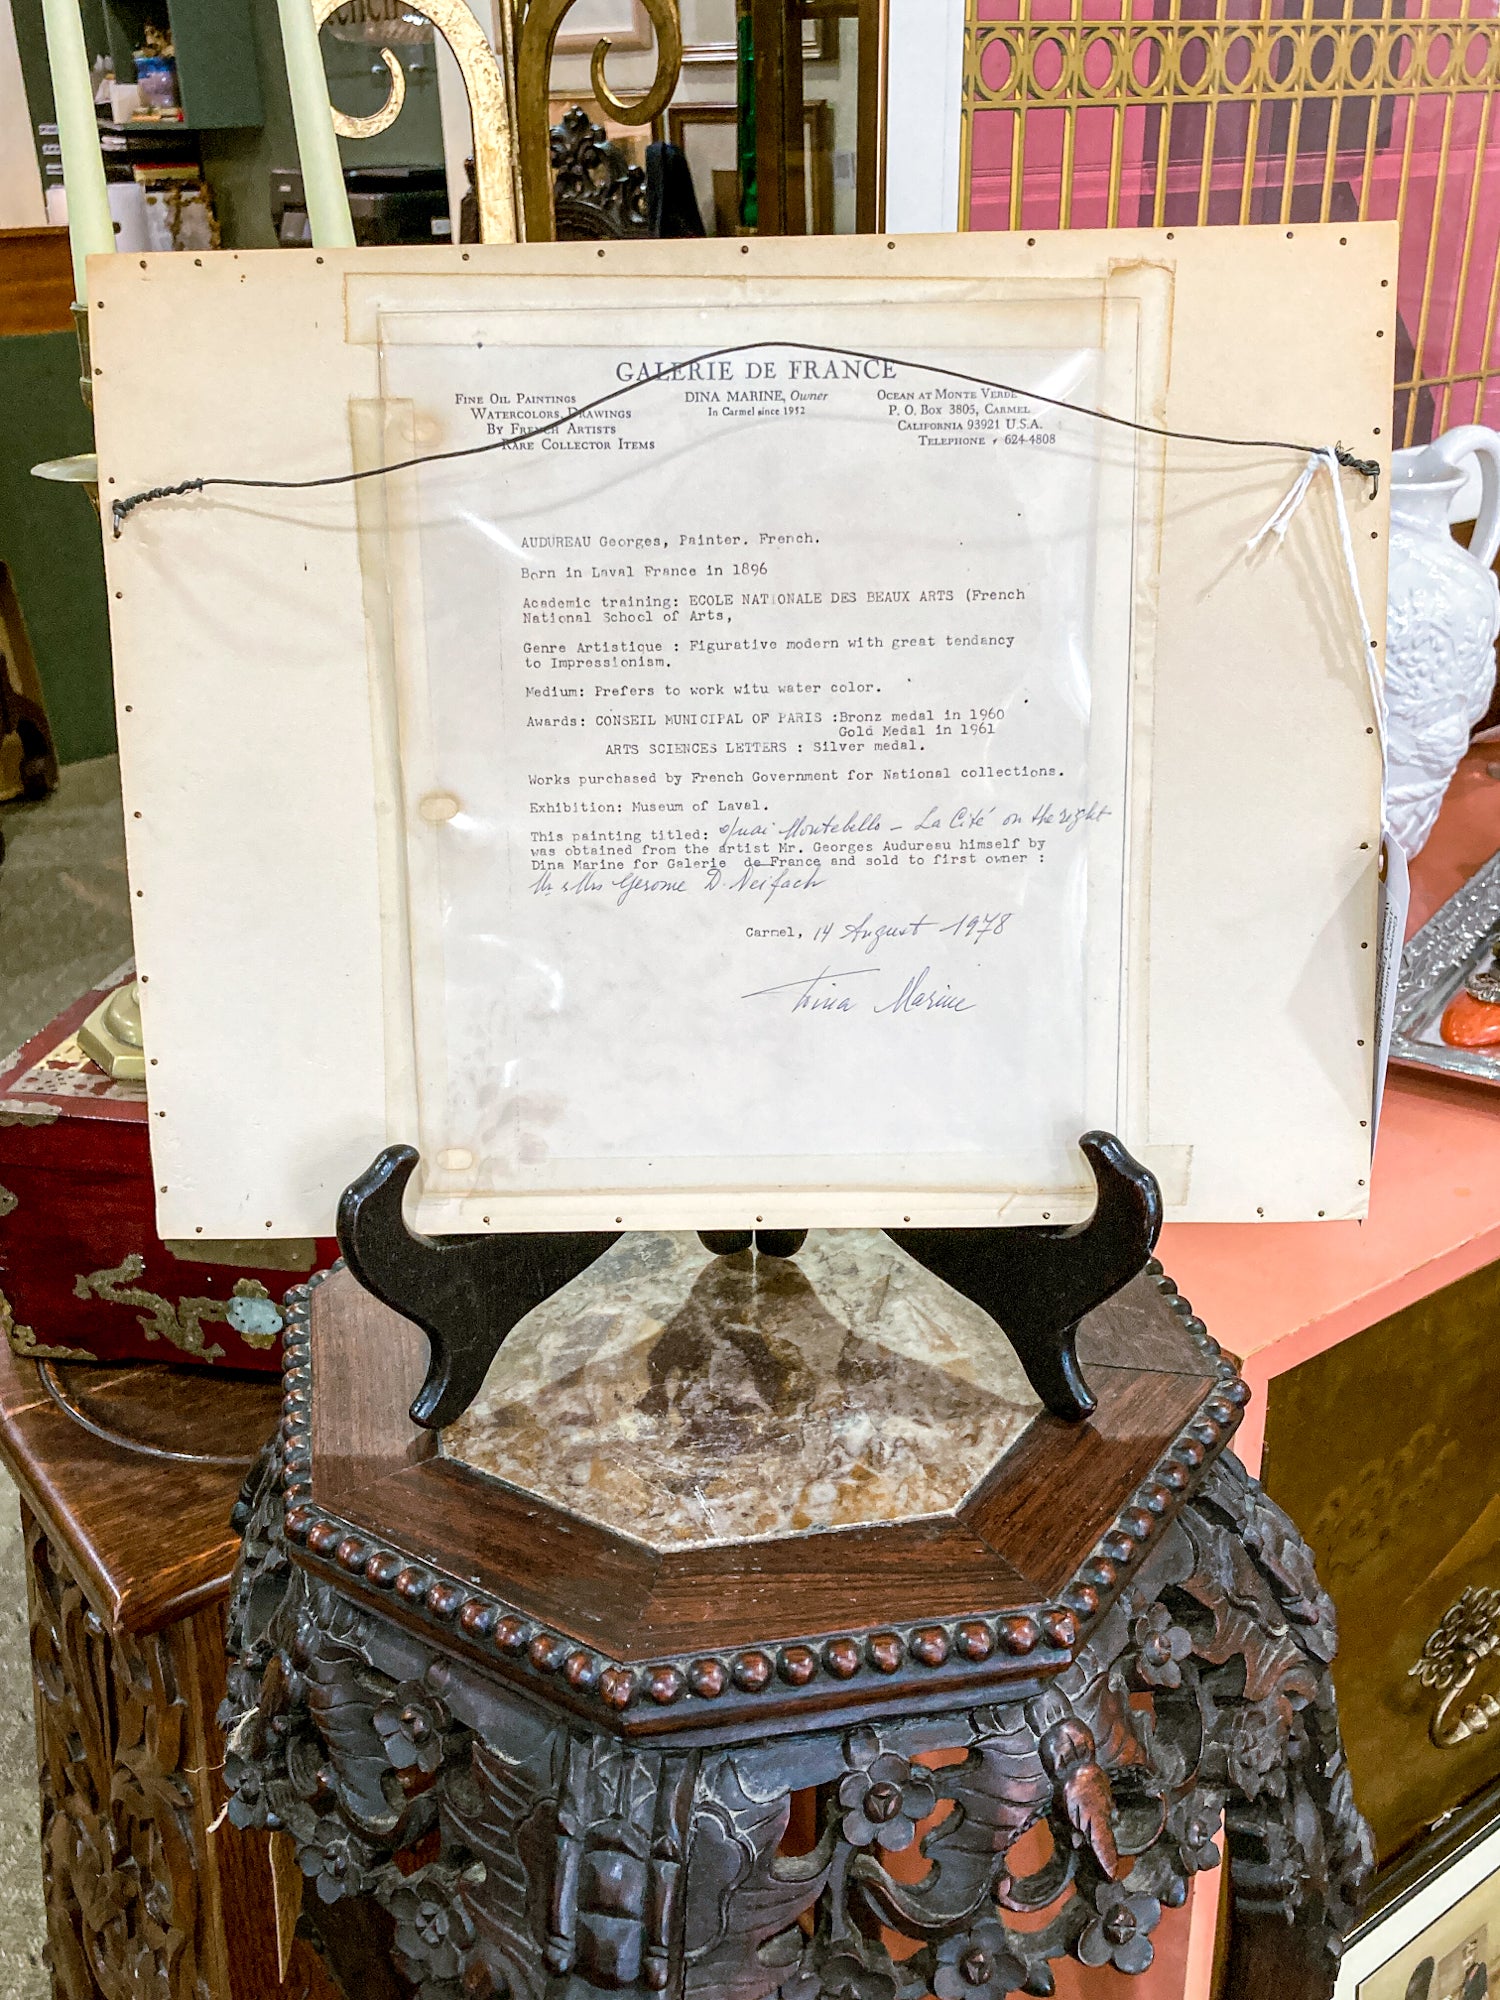 GALERIE DE FRANCE
FINE OIL PAINTINGS
WATERCOLORS, DRAWINGS
BY FRENCH ARTISTS
RARE COLLECTOR ITEMS
DINA MARINE, Owner
In Carmel since 1952
OCEAN AT MONTE VERDE
P. O. BOX 3805, CARMEL
CALIFORNIA 93921 U.S.A.
TELEPHONE 624-4808
AUDUREAU Georges, Painter. French.
Born in Laval France in 1896
Academic training: ECOLE NATIONALE DES BEAUX ARTS (French
National School of Arts,
Genre Artistique : Figurative modern with great tendancy
to Impressionism.
Medium: Prefers to work witu water color.
Awards: CONSEIL MUNICIPAL OF PARIS :Bronz medal in 1960
Gold Medal in 1961
ARTS SCIENCES LETTERS : Silver medal.
Works purchased by French Government for National collections.
Exhibition: Museum of Laval.
This painting titled: Quai Montebello - La Cité on the right
was obtained from the artist Mr. Georges Audureau himself by
Dina Marine for Galerie de France and sold to first owner :
Mr & Mrs Gerome D. Neifach
Carmel, 14 August 1978
Dina Marine